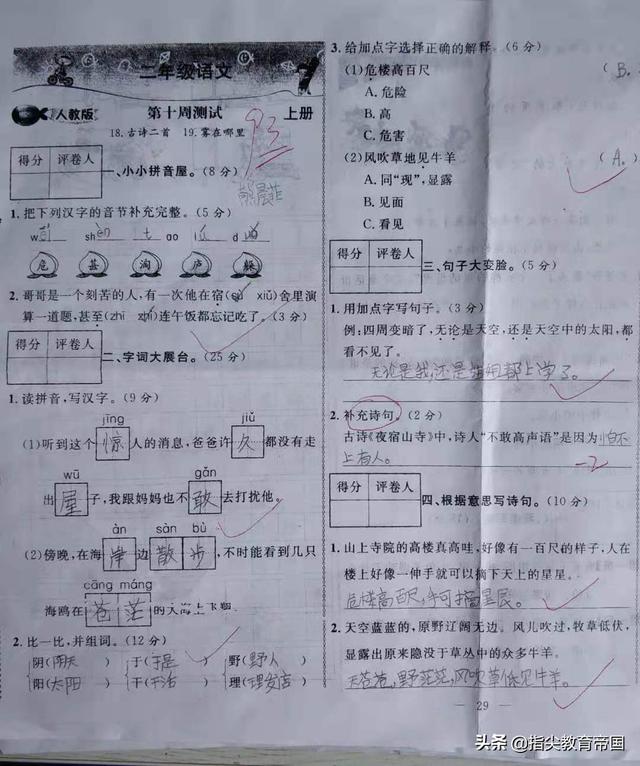 二年级语文
人教版
第十周测试
上册
18.古诗二首 19.雾在哪里
93
得分 评卷人
一、小小拼音屋。(8分)
1.把下列汉字的音节补充完整。(5分)
w sh ao d
危 甚 淘 庐
2.哥哥是一个刻苦的人,有一次他在宿(sù xiǔ)舍里演
算一道题,甚至(zhì zhí)连午饭都忘记吃了。(3分)
得分 评卷人
二、字词大展台。(25分)
1.读拼音,写汉字。(9分)
jīng jiǔ
(1)听到这个惊人的消息,爸爸许久都没有走
wū gǎn
出屋子,我跟妈妈也不敢去打扰他。
àn sàn bù
(2)傍晚,在海岸边散步,不时能看到几只
cāng máng
海鸥在苍茫的大海上飞翔
2.比一比,并组词。(12分)
阴(阴天) 于(于是) 野(野人)
阳(太阳) 干(干活) 理(理发店)
3.给加点字选择正确的解释。(6分)
(1)危楼高百尺 (B.
A.危险
B.高
C.危害
(2)风吹草地见牛羊 (A.)
A.同“现”,显露
B.见面
C.看见
得分 评卷人
三、句子大变脸。(5分)
1.用加点字写句子。(3分)
例:四周变暗了,无论是天空,还是天空中的太阳,都
看不见了。
无论是我,还是 都上学了。
2.补充诗句。(2分)
古诗《夜宿山寺》中,诗人“不敢高声语”是因为怕不
上有人。
-2
得分 评卷人
四、根据意思写诗句。(10分)
1.山上寺院的高楼真高哇,好像有一百尺的样子,人在
楼上好像一伸手就可以摘下天上的星星。
危楼高百尺,手可摘星辰。
2.天空蓝蓝的,原野辽阔无边。风儿吹过,牧草低伏,
显露出原来隐没于草丛中的众多牛羊。
天苍苍,野茫茫,风吹草低见牛羊。
— 29 —
头条 @指尖教育帝国